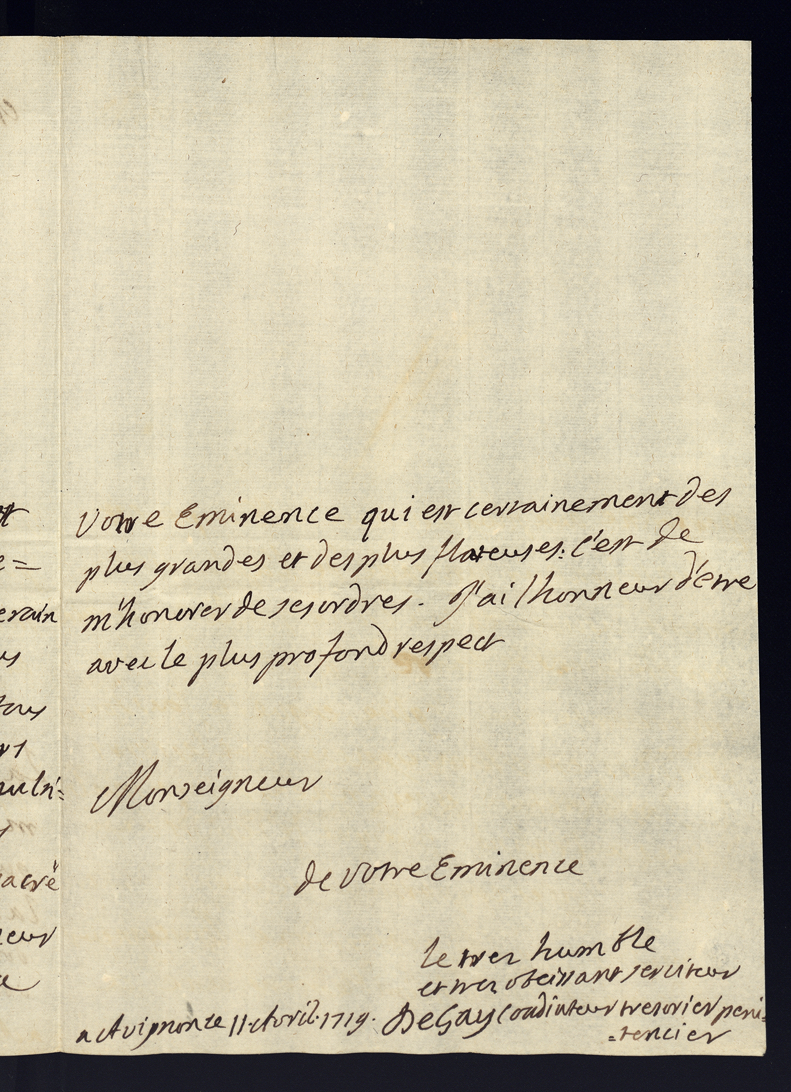 votre Eminence qui est certainement des
plus grandes et des plus flateuses. c'est de
m'honorer de ses ordres. J'ai l'honneur d'etre
avec le plus profond respect
Monseigneur
de votre Eminence
le tres humble
et tres obeissant serviteur
a Avignon ce 11. Avril. 1719. DeGay Coadiuteur tresorier peni=
=tencier
erain
tous
sacré
neur